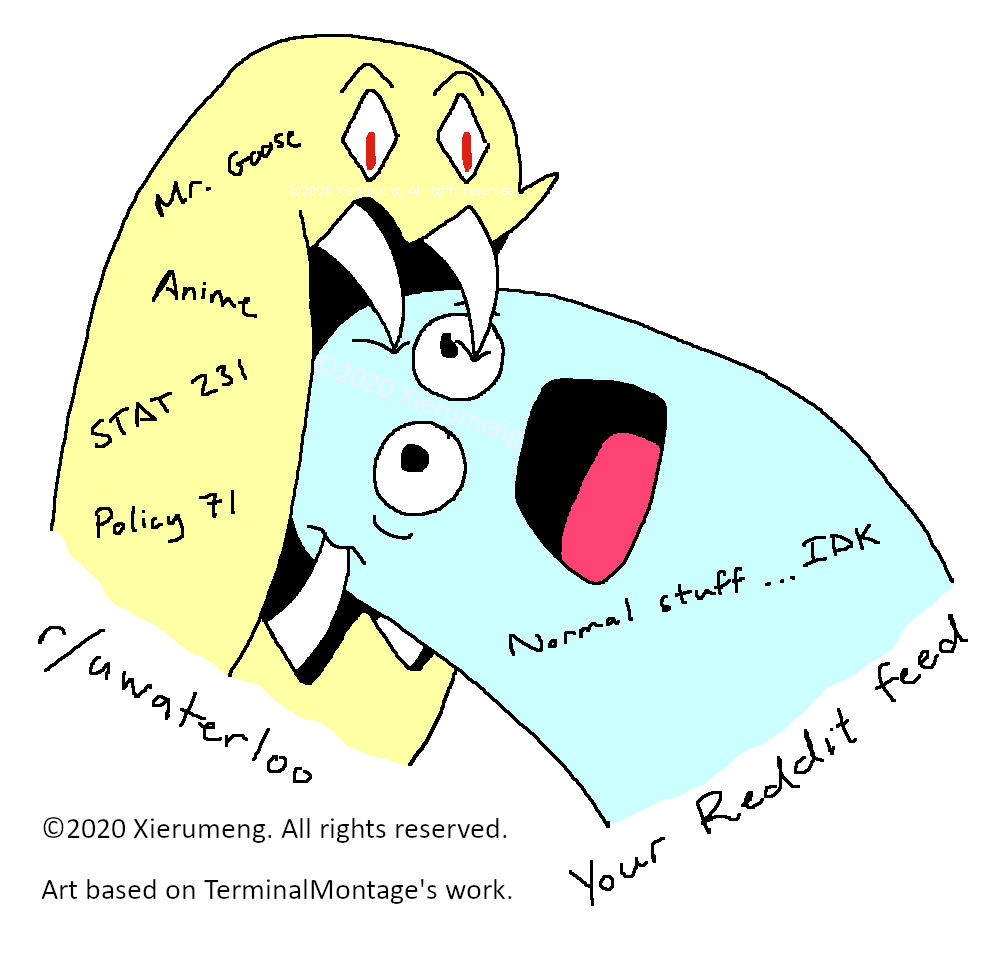 Mr. Goose
©2020 Xierumeng. All rights reserved.
Anime
©2020 Xierumeng
STAT 231
Policy 71
Normal stuff ... IDK
r/uwaterloo
Your Reddit feed
©2020 Xierumeng. All rights reserved.
Art based on TerminalMontage's work.